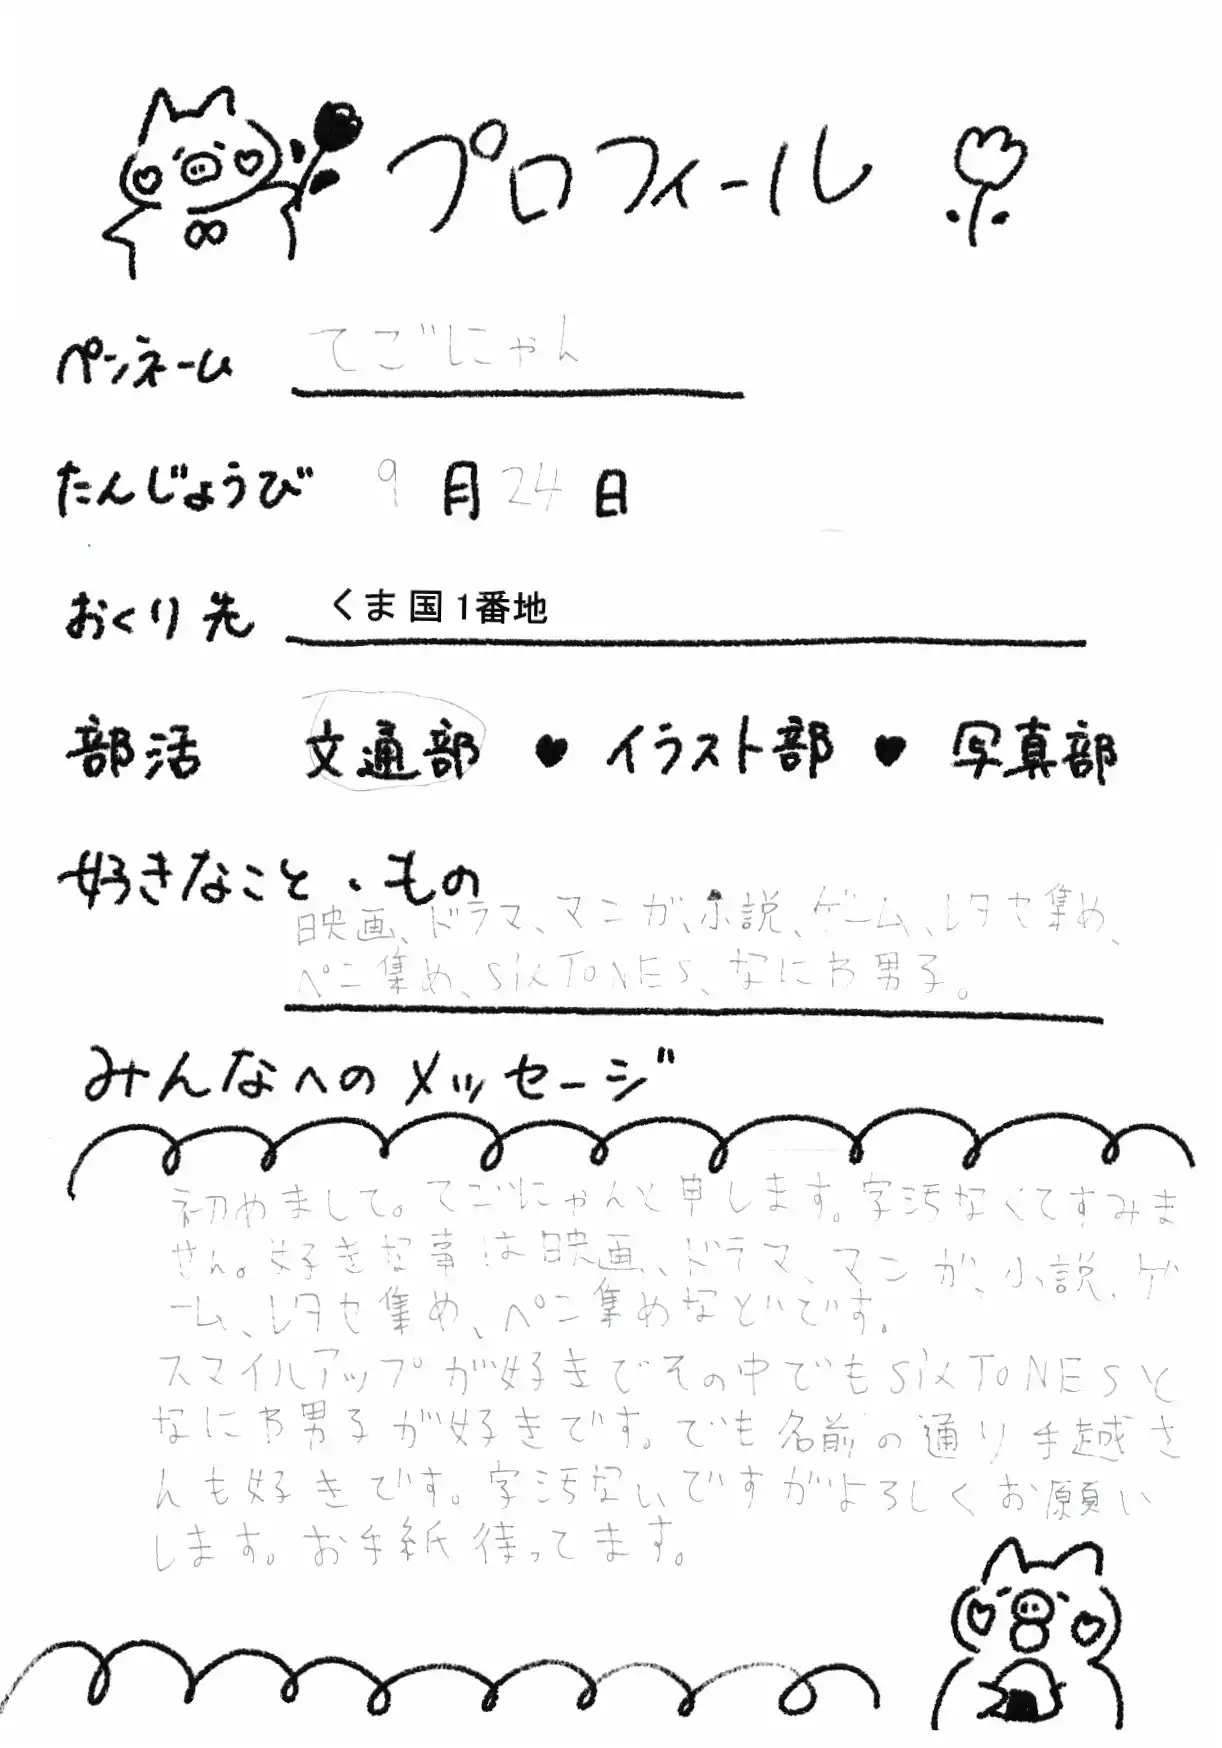 プロフィール
ペンネーム てごにゃん
たんじょうび 9月24日
おくり先 くま国1番地
部活 文通部 ♥ イラスト部 ♥ 写真部
好きなこと・もの
映画、ドラマ、マンガ、小説、ゲーム、レタセ集め、
ペン集め、SixTONES、なにわ男子。
みんなへのメッセージ
初めまして。てごにゃんと申します。字汚なくてすみま
せん。好きな事は映画、ドラマ、マンガ、小説、ゲ
ーム、レタセ集め、ペン集めなどです。
スマイルアップが好きでその中でもSixTONESと
なにわ男子が好きです。でも名前の通り手越さ
んも好きです。字汚ないですがよろしくお願い
します。お手紙待ってます。